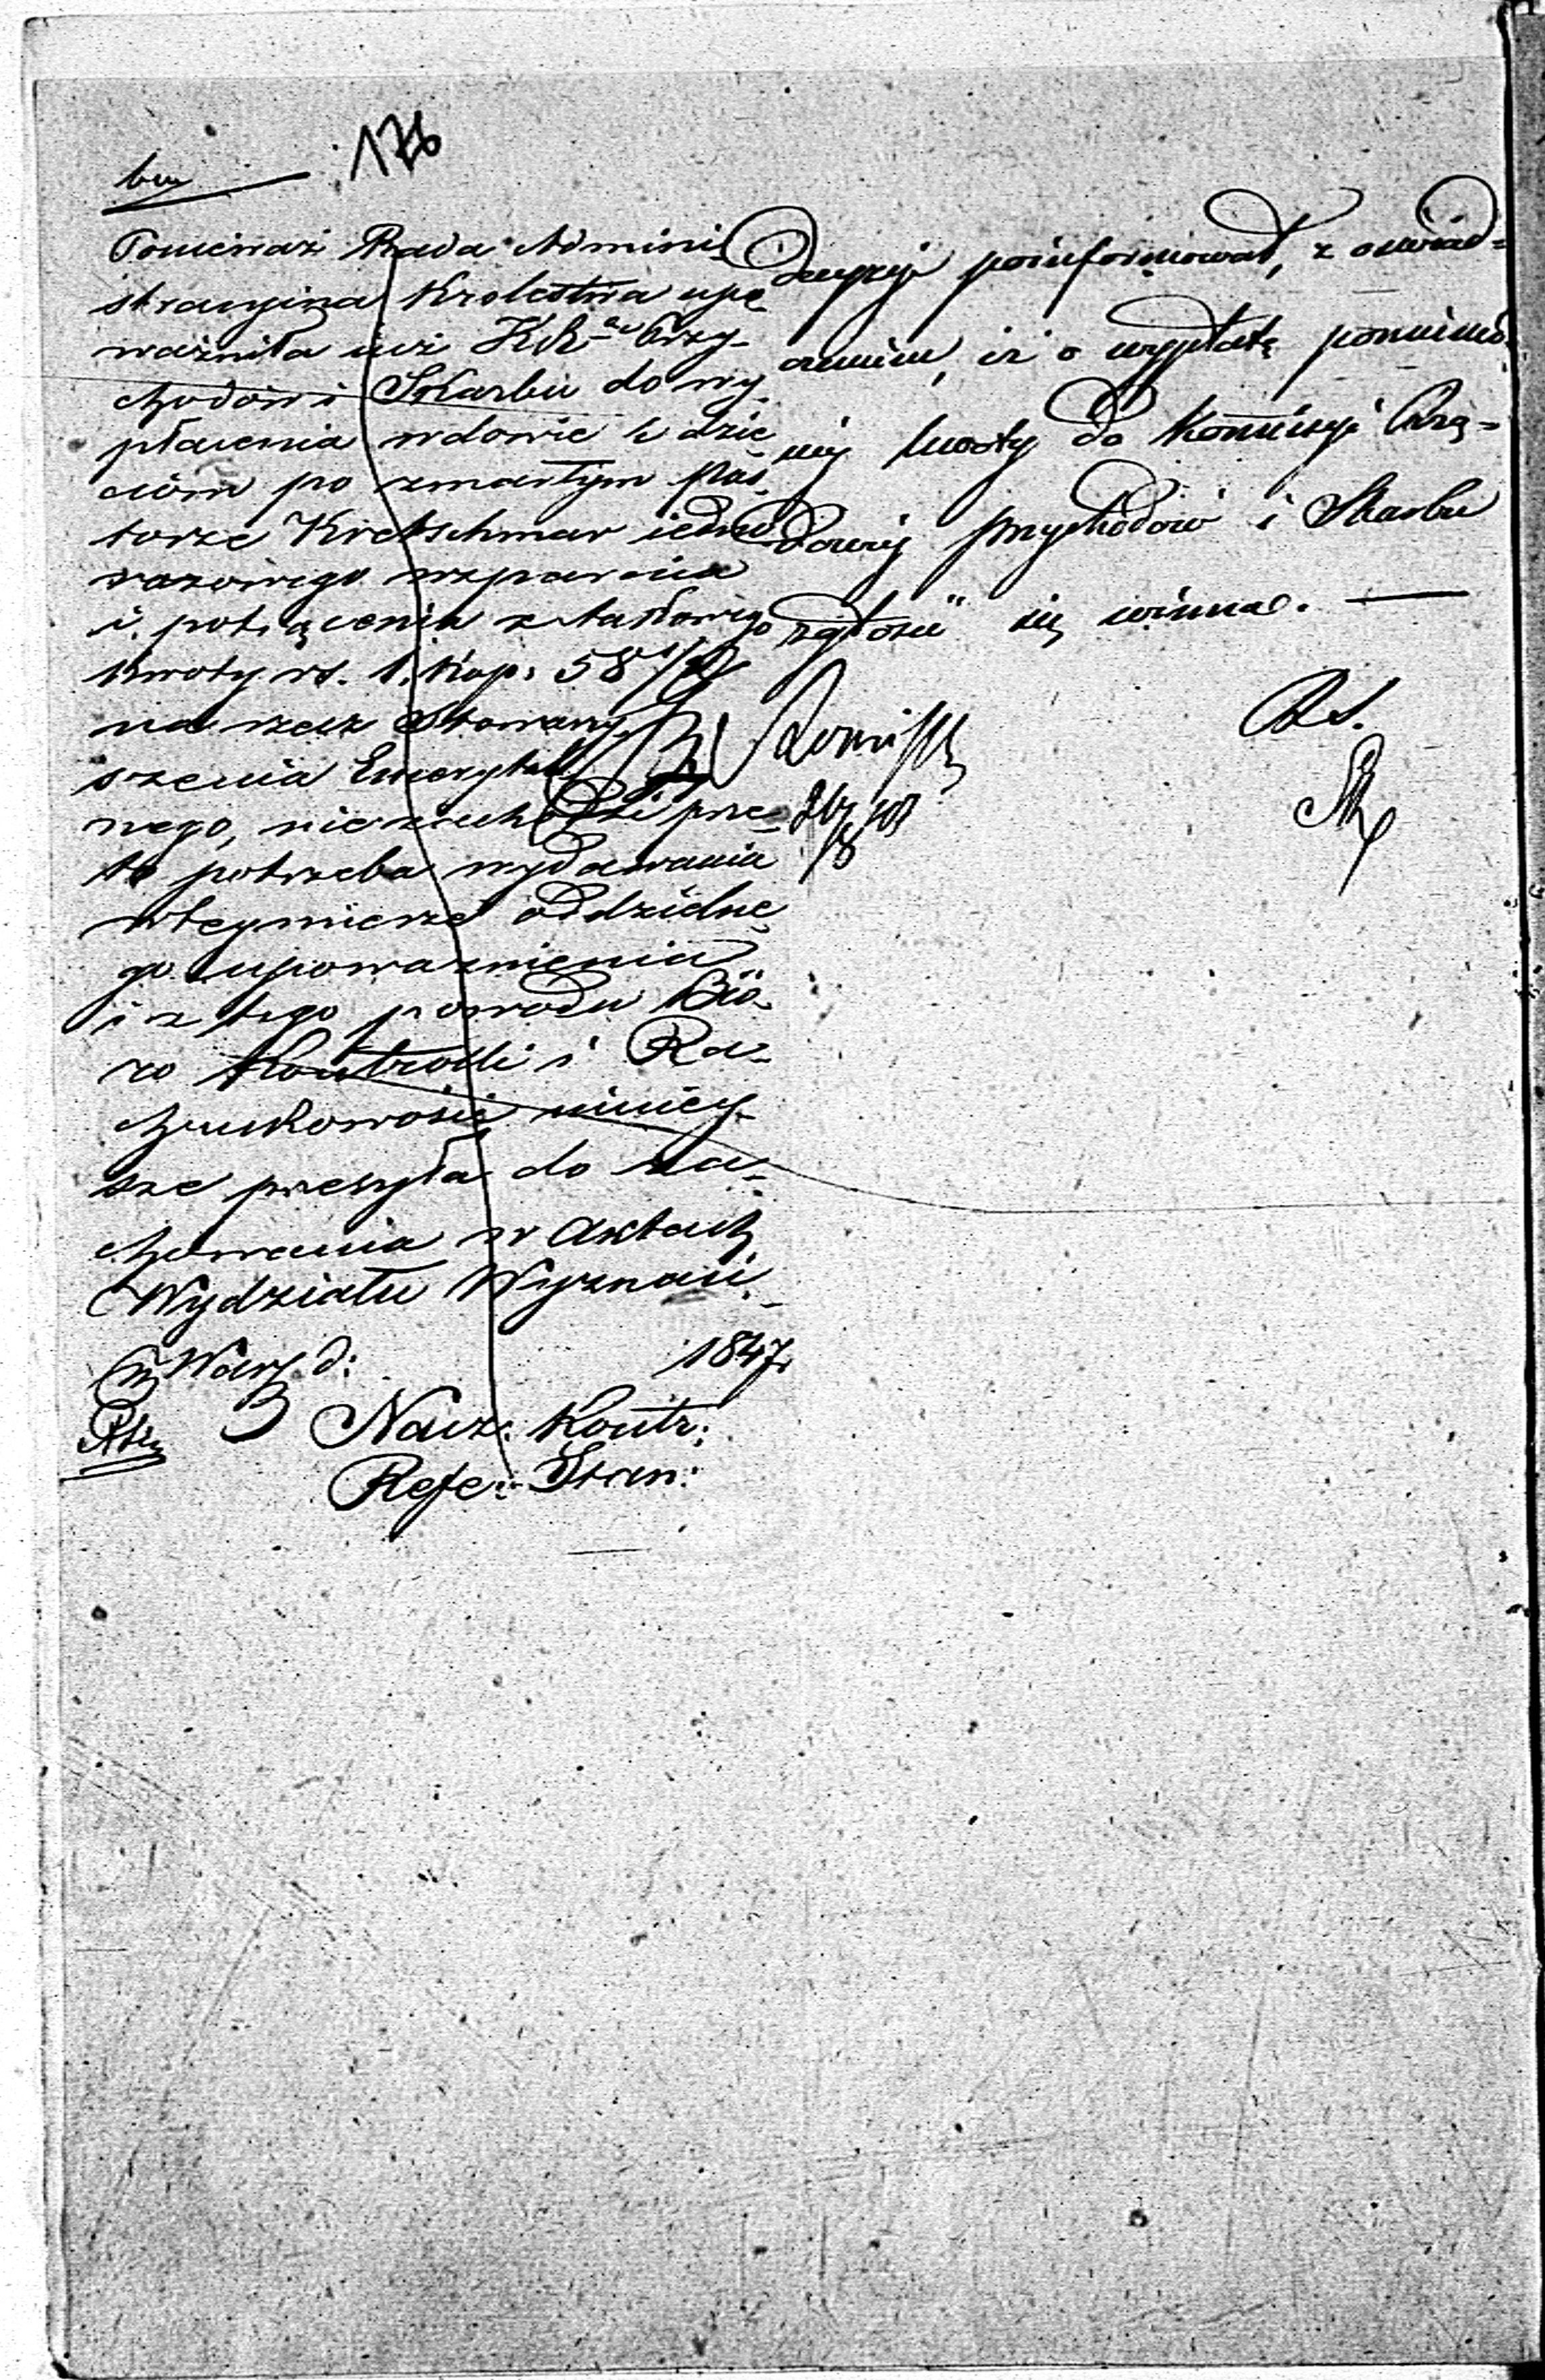 176
Ponieważ Rada Admini
stracyjna Krolestwa upo
ważniła już KR Przy-
chodów i Skarbu do wy
płacenia wdowie i dzie
ciom po zmarłym pas
torze Kretschmar jedno
razowego wsparcia
i potrącenia z takowego
kwoty rs. 1. kop: 58 1/2
na rzecz Stowarzy
szenia Emerytal
nego, niezachodzi prze-
to potrzeba wydawania
w tey mierze oddzielne
go upoważnienia
i z tego powodu Biö-
ro Kontrolli i Ra-
chunkowości niniey-
sze przesyła do za-
chowania w Aktach
Wydziału Wyznań.
w Warsz d: 1847r
Nacz: Kontr:
Refe: Stan:
decyzyi poinformować, z oświad=
czeniem, iż o wypłatę pomienio=
néj kwoty do Kommissyi Rzą=
dowéj Przychodów i Skarbu
zgłosić się winna. —